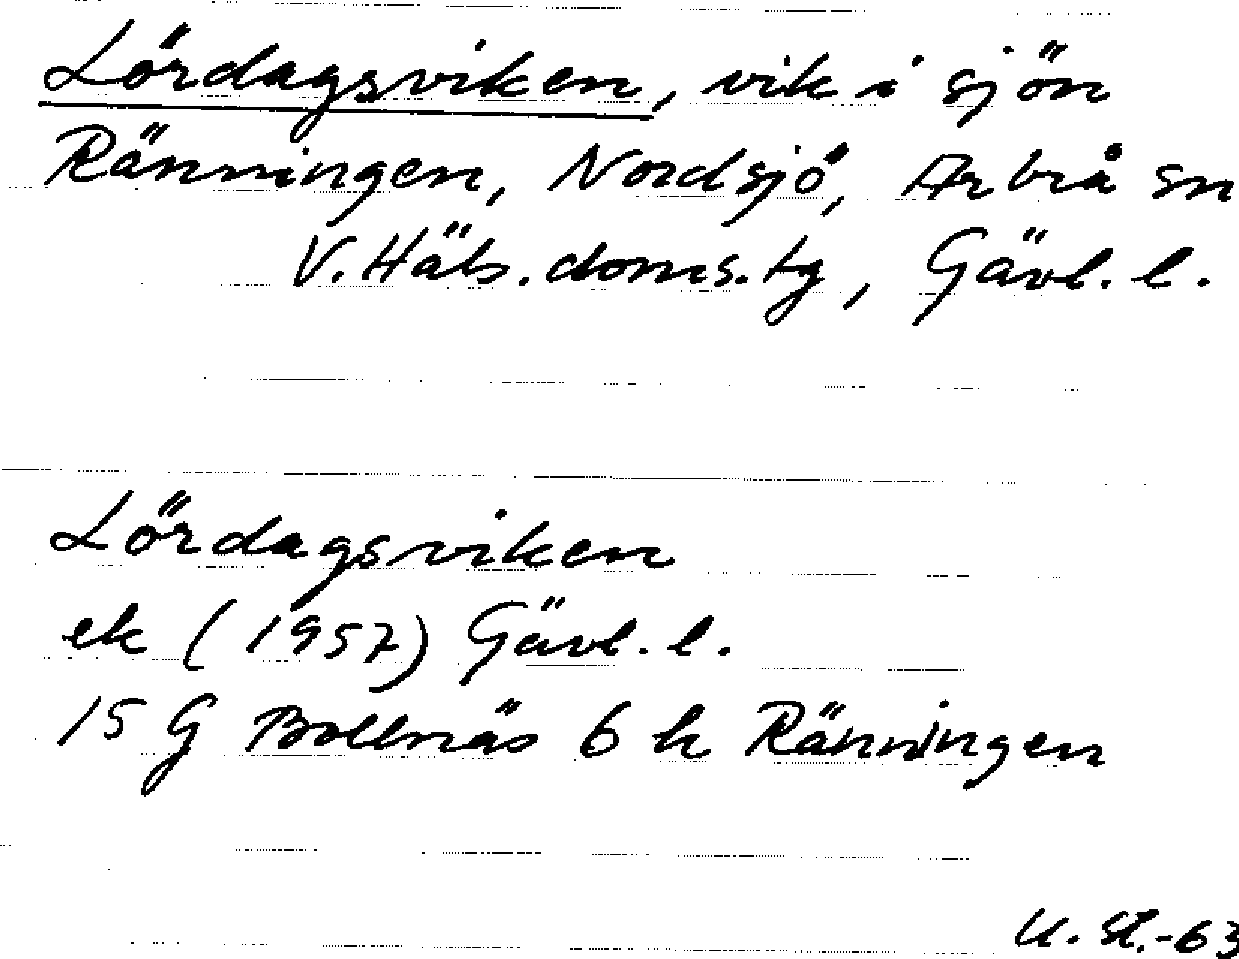 Lördagsviken, vik i sjön
Ränningen, Nordsjö, Arbrå sn
V. Häls. doms. tg, Gävl. l.
Lördagsviken
ek (1957) Gävl. l.
15 G Bollnäs 6 h Ränningen
U. St.-63